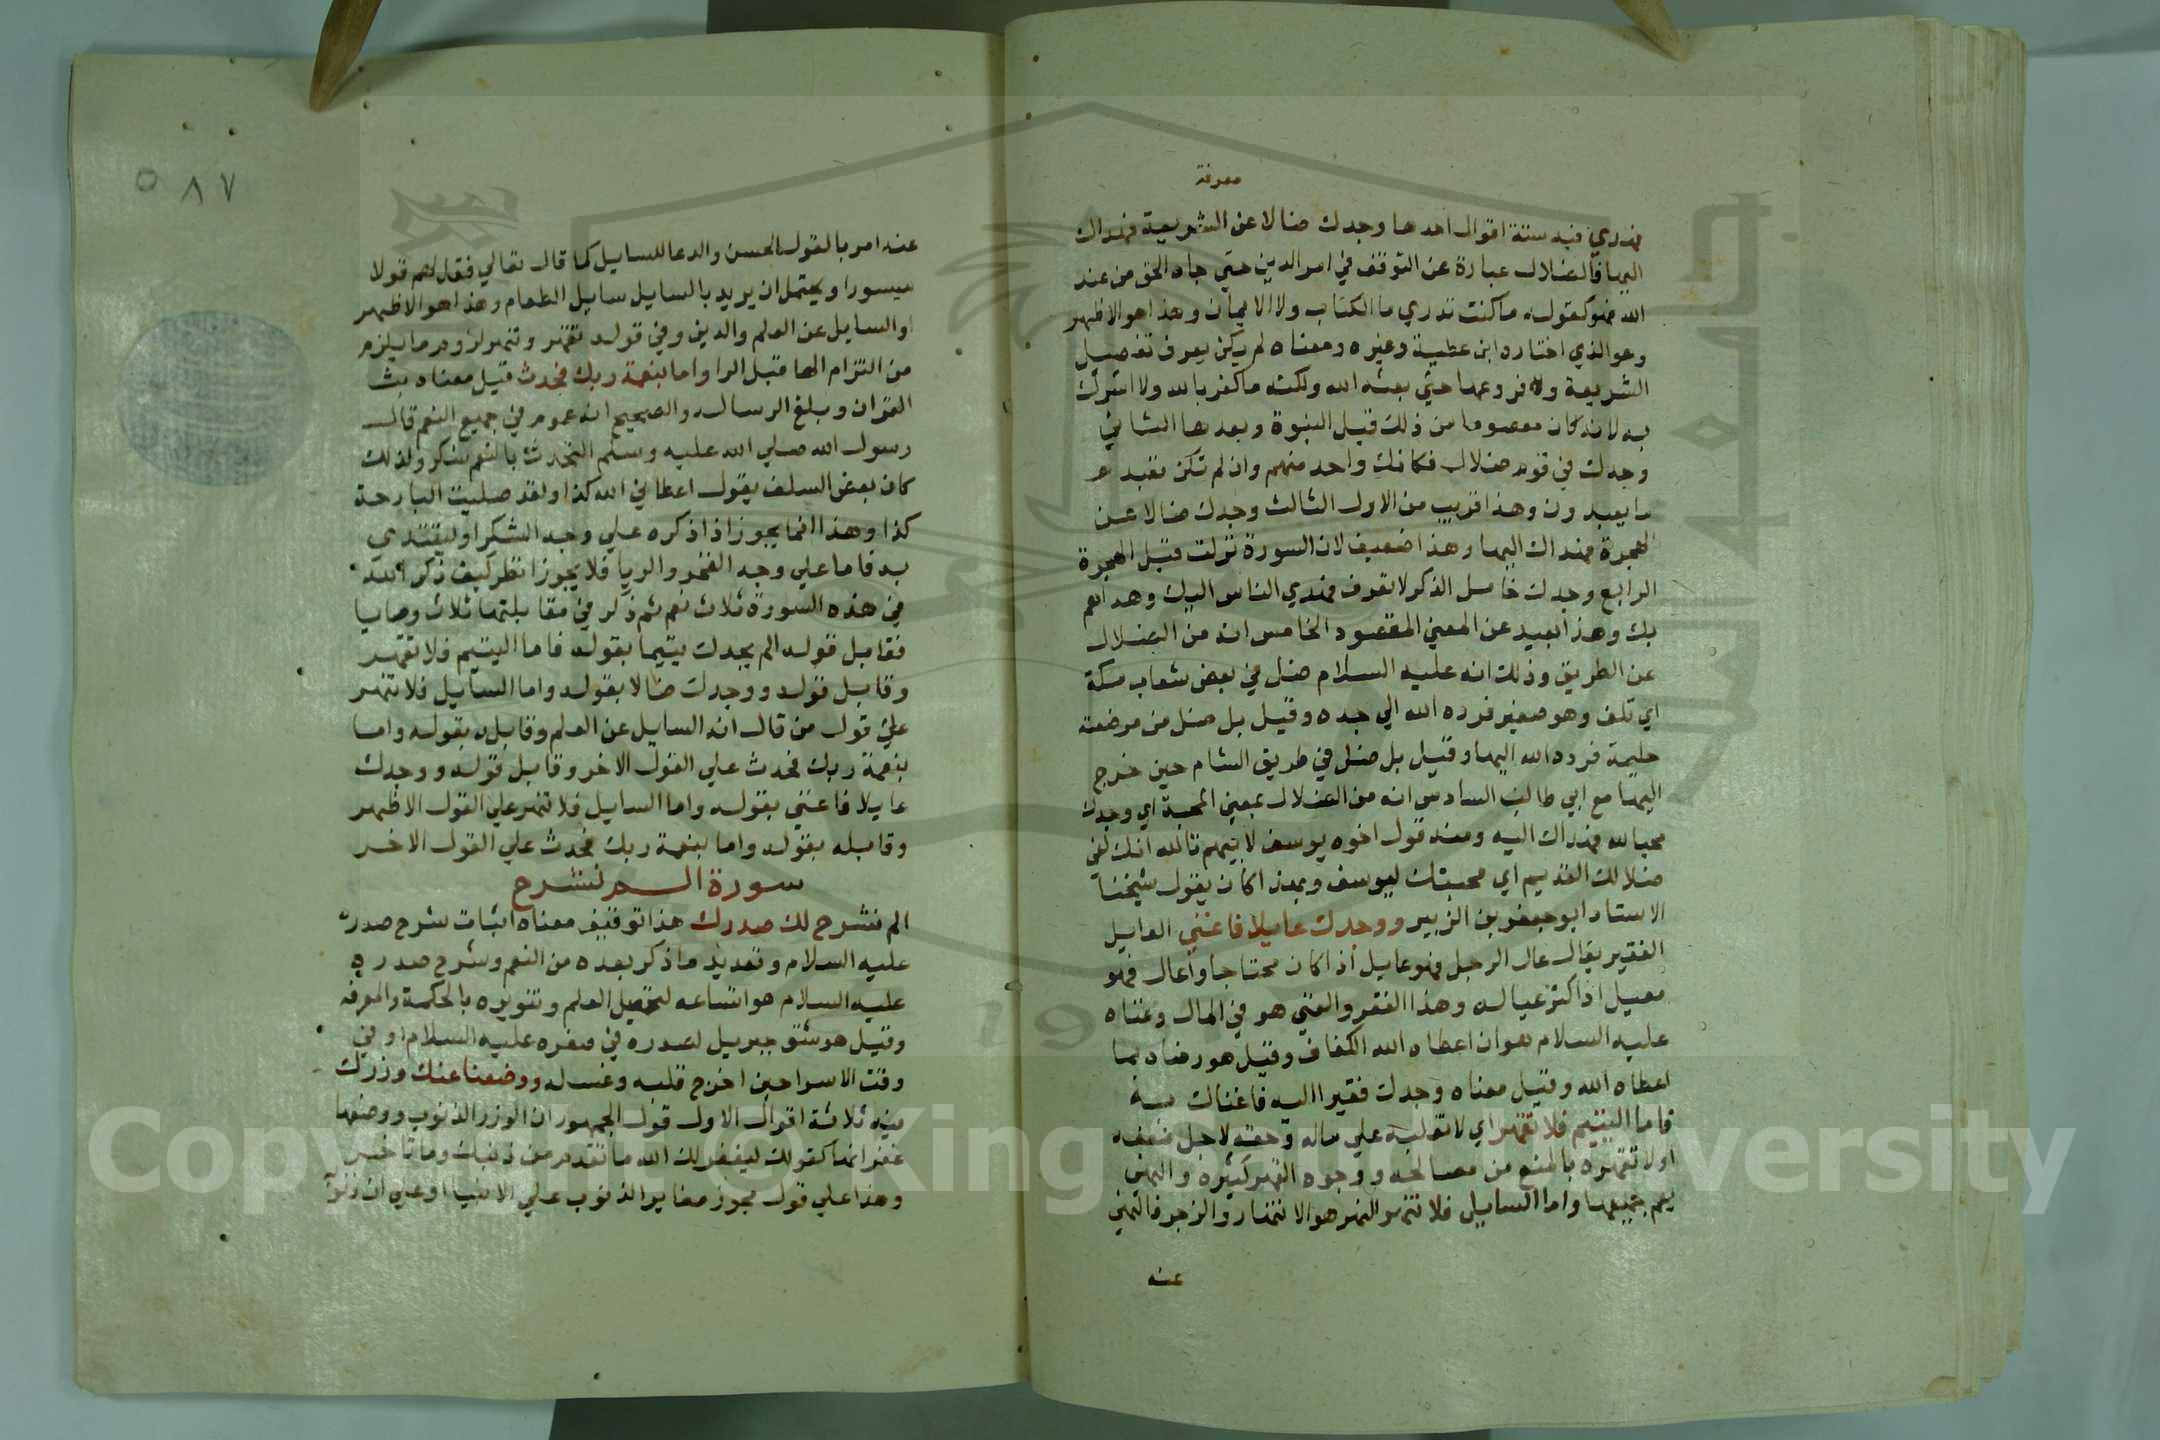 معرفة
فهدي فيه ستة اقوال احدها وجدك ضالا عن الشريعة فهداك
اليها فالضلال عبارة عن التوقف في امر الدين حتي جاه الحق من عند
الله فهو كقوله ما كنت تدري ما الكتاب ولا الايمان وهذا هو الاظهر
وهو الذي اختاره ابن عطية وغيره ومعناه لم يكن يعرف تفصيل
الشريعة ولا فروعها حتي بعثه الله ولكنه ما كفر بالله ولا اشرك
به لانه كان معصوما من ذلك قبل النبوة وبعدها الثاني
وجدك في قوم ضلال فكانك واحد منهم وان لم تكن تعبد
ما يعبدون وهذا قريب من الاول الثالث وجدك ضالا عن
الهجرة فهداك اليها وهذا ضعيف لان السورة نزلت قبل الهجرة
الرابع وجدك خامل الذكر لا تعرف فهدي الناس اليك وهداهم
بك وهذا بعيد عن المعني المقصود الخامس انه من الضلال
عن الطريق وذلك انه عليه السلام ضل في بعض شعاب مكة
اي تلف وهو صغير فرده الله الي جده وقيل بل ضل من مرضعته
حليمة فرده الله اليها وقيل بل ضل في طريق الشام حين خرج
اليها مع ابي طالب السادس انه من الضلال بمعني المحبة اي وجدك
محبا لله فهداك اليه ومنه قول اخوه يوسف لابيهم تالله انك لفي
ضلالك القديم اي محبتك ليوسف وبهذا كان يقول شيخنا
الاستاد ابو جعفر بن الزبير ووجدك عايلا فاغني العايل
الفقير يقال عال الرجل فهو عايل اذا كان محتاجا واعال فهو
معيل اذا كثر عياله وهذا الفقر والغني هو في المال وغناه
عليه السلام هو ان اعطاه الله الكفاف وقيل هو رضاه بما
اعطاه الله وقيل معناه وجدك فقيرا اليه فاغناك به
فاما اليتيم فلا تقهر اي لا تغلبه علي ماله وحقه لاجل ضعفه
اولا تقهره بالمنع من مصالحه ووجوه القهر كثيره والنهي
يعم جميعها واما السايل فلا تنهر النهر هو الانتهار والزجر فالنهي
عنه
٥٨٧
عنه امر بالقول الحسن والدعا للسايل كما قال تعالي فقل لهم قولا
ميسورا ويحتمل ان يريد بالسايل سايل الطعام وهذا هو الاظهر
او السايل عن العلم والدين وفي قوله تقهر وتنهر لزوم ما يلزم
من التزام الها قبل الرا واما بنعمة ربك فحدث قيل معناه بث
القران وبلغ الرساله والصحيح انه عموم في جميع النعم قال
رسول الله صلي الله عليه وسلم التحدث بالنعم شكر ولذلك
كان بعض السلف يقول اعطاني الله كذا ولقد صليت البارحة
كذا وهذا انما يجوز اذا ذكره علي وجه الشكر او ليقتدي
به فاما علي وجه الفخر والريا فلا يجوز انظر كيف ذكر الله
في هذه السورة ثلاث نعم ثم ذكر في مقابلتها ثلاث وصايا
فقابل قوله الم يجدك يتيما بقوله فاما اليتيم فلا تقهر
وقابل قوله ووجدك ضالا بقوله واما السايل فلا تنهر
علي قول من قال انه السايل عن العلم وقابله بقوله واما
بنعمة ربك فحدث علي القول الاخر وقابل قوله ووجدك
عايلا فاغني بقوله واما السايل فلا تنهر علي القول الاظهر
وقابله بقوله واما بنعمة ربك فحدث علي القول الاخر
سورة الم نشرح
الم نشرح لك صدرك هذا توقيف معناه اثبات شرح صدره
عليه السلام وتعديد ما ذكر بعده من النعم وشرح صدره
عليه السلام هو اتساعه لتحصيل العلم وتنويره بالحكمة والمعرفه
وقيل هو شق جبريل لصدره في صغره عليه السلام او في
وقت الاسرا حين اخرج قلبه وغسله ووضعنا عنك وزرك
فيه ثلاثة اقوال الاول قول الجمهور ان الوزر الذنوب ووضعها
غفرانها كقولك ليغفر لك الله ما تقدم من ذنبك وما تاخر
وهذا علي قول مجوز صغاير الذنوب علي الانبيا او علي ان ذنوبه
Copyright © King Saud University